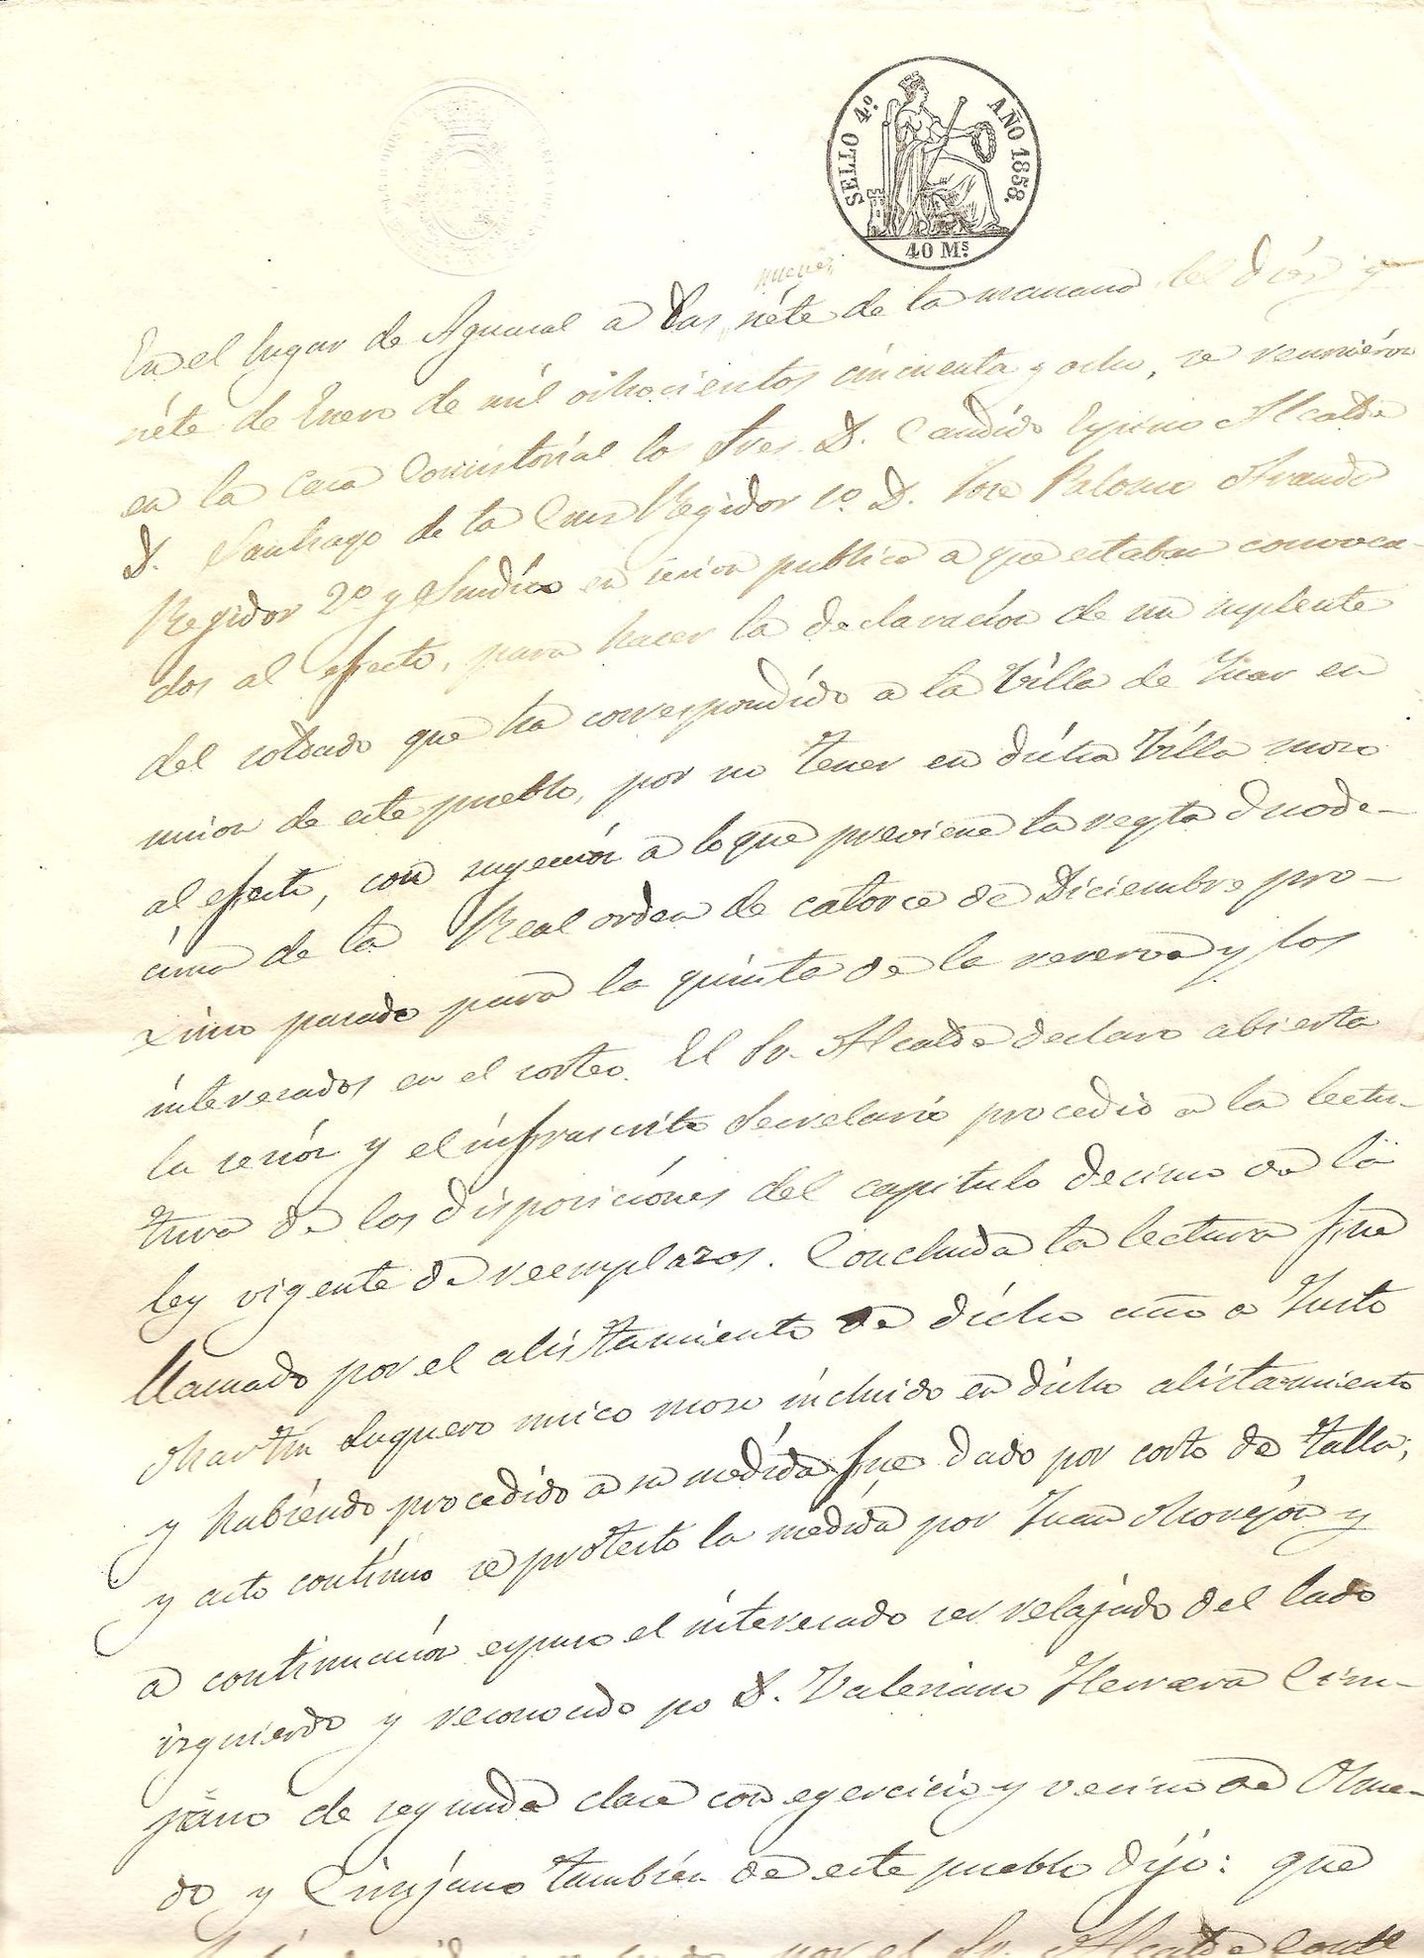 SELLO 4º. AÑO 1858.
40 Ms.
nueve
En el lugar de Aguasal a las siéte de la manana del diéz y
siéte de Enero de mil ochocientos cincuenta y ocho, se reuniéron
en la Casa Consistoriál los Sres. D. Candído Espino Alcalde
D. Santiago de la Cruz Regidor 1º. D. Jose Palomo Aranda
Regidor 2º y Sindíco en sesion publica a que estaban convoca-
dos al efecto, para hacer la declaracíon de un suplente
del soldado que ha correspondído a la Villa de Iscar en
union de este pueblo, por no tener en dicha Villa moso
al efecto, con sugeción a lo que previene la regla duode-
cima de la Real orden de catorce de Diciembre pro-
ximo pasado para la quinta de la reserva y los
interesados en el sorteo. El Sr. Alcalde declaro abierta
la sesión y el infrascrito Secretario procedio a la lectu-
tura de los disposiciónes del capitulo decimo de la
ley vigente de reemplazos. Concluida la lectura fue
llamado por el alistamiento de dicho año a Justo
Martín Luguero unico moso incluido en dicho alistamiento
y habiéndo procedido a su medída fue dado por corto de talla;
y acto contínuo se protesto la medída por Juan Morejón y
a continuación espuso el interesado ser relajado del lado
izquierdo y reconocido po D. Valeriano Herrera Ciru-
jano de segunda clase con egercicio y vecino de Olme-
do y Cirujano también de este pueblo dijo: que
por el Sr. Alcalde